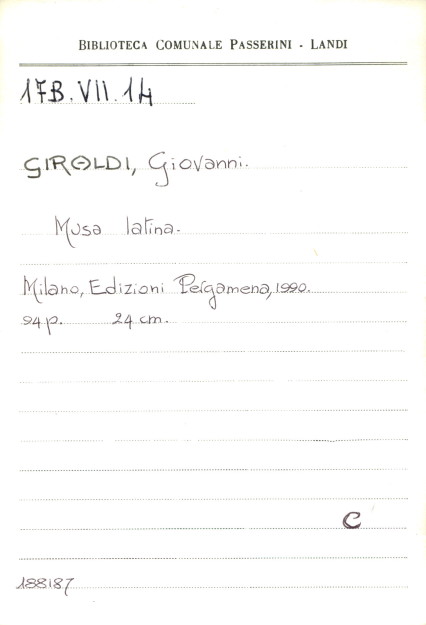 BIBLIOTECA COMUNALE PASSERINI - LANDI
17B.VII.14
GIRALDI, Giovanni.
Musa latina.
Milano, Edizioni Pergamena, 1990.
94 p. 24 cm.
C
188187